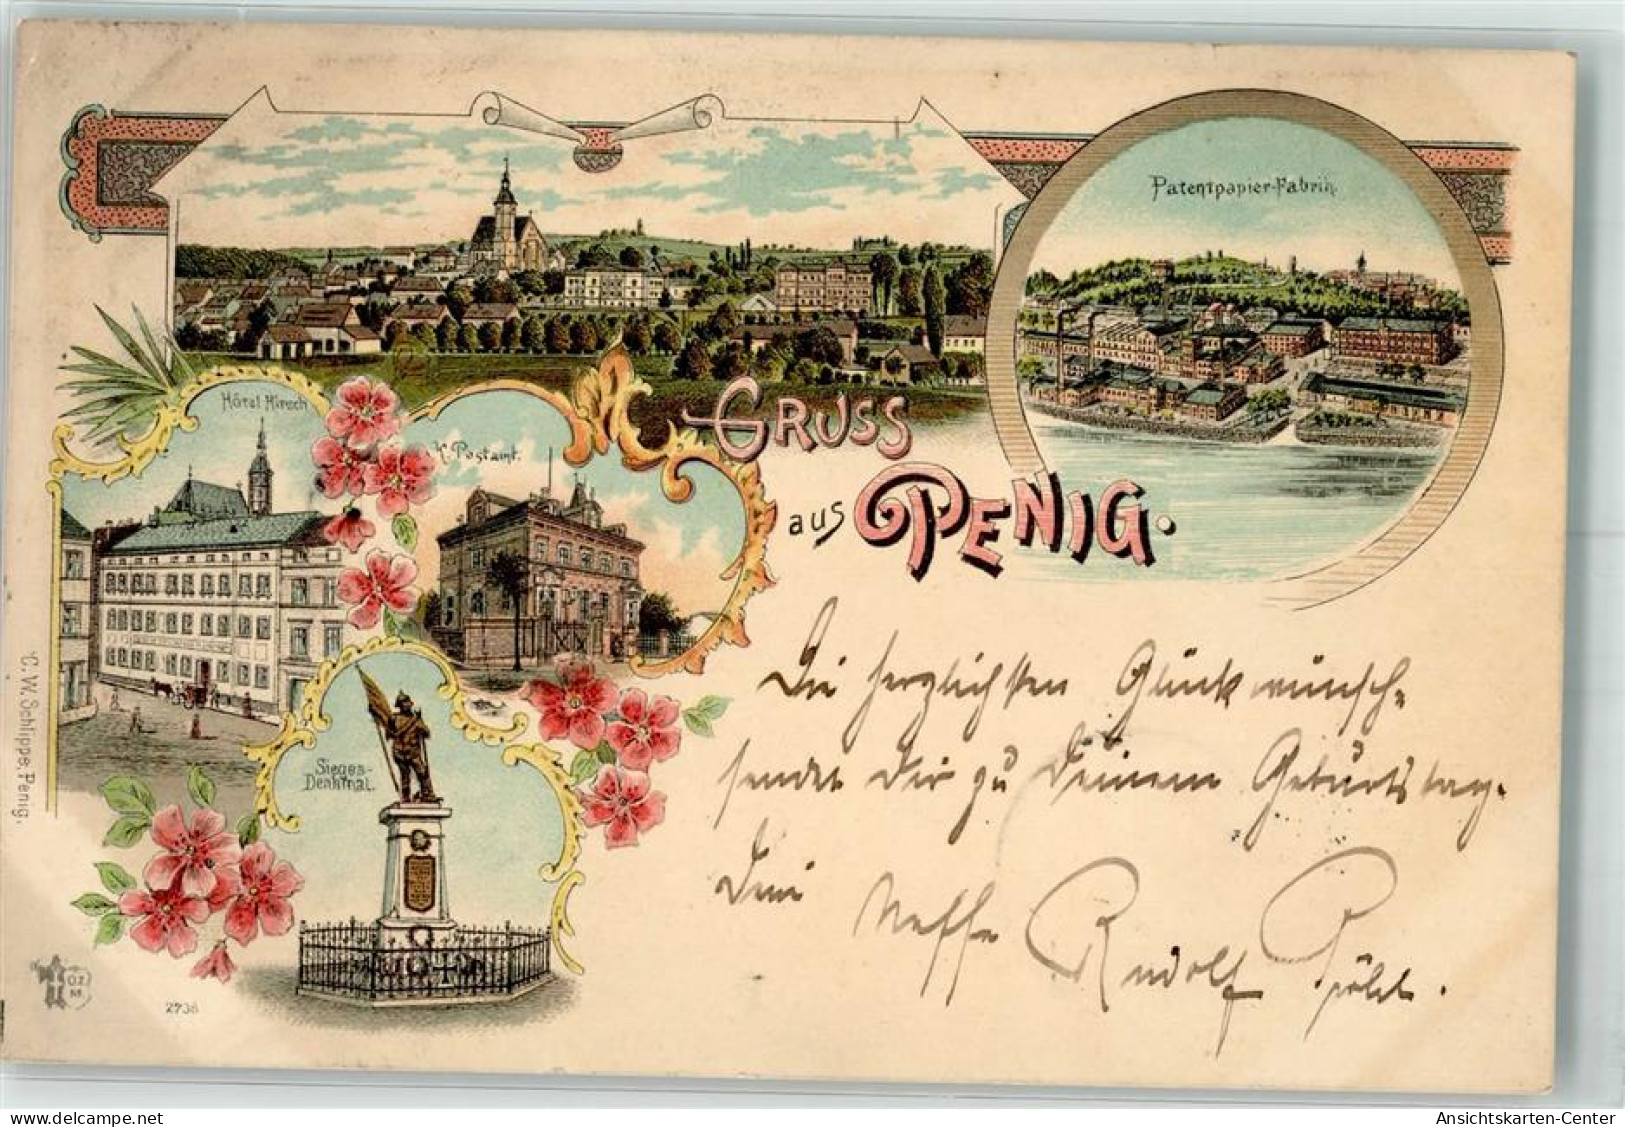 Patentpapier-Fabrik
Hôtel Hirsch
K. Postamt.
GRUSS
aus PENIG.
Sieges-
Denkmal.
C. W. Schlippe, Penig.
2736
Die herzlichsten Glückwünsche
sendet Dir zu Deinem Geburtstag.
Dein Neffe Rudolf
Ansichtskarten-Center